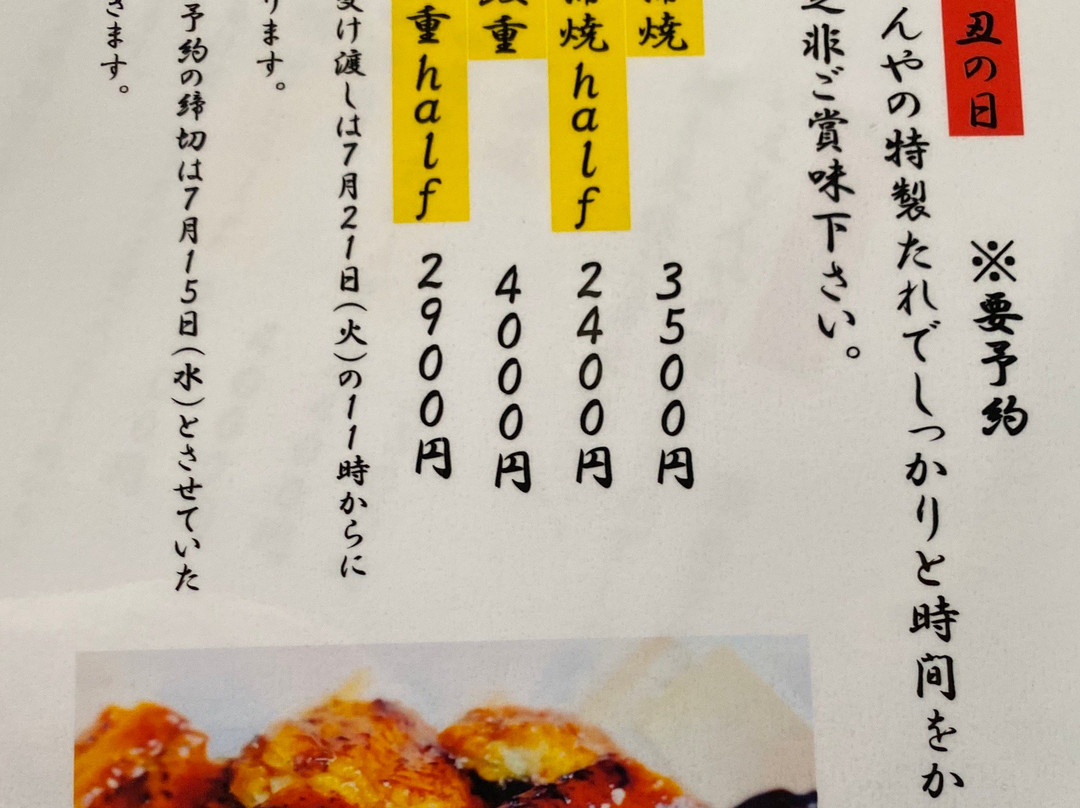 丑の日
※要予約
んやの特製たれでしっかりと時間をか
非ご賞味下さい。
焼 3500円
焼half 2400円
重 4000円
重half 2900円
受け渡しは7月21日(火)の11時からに
ります。
予約の締切は7月15日(水)とさせていた
きます。